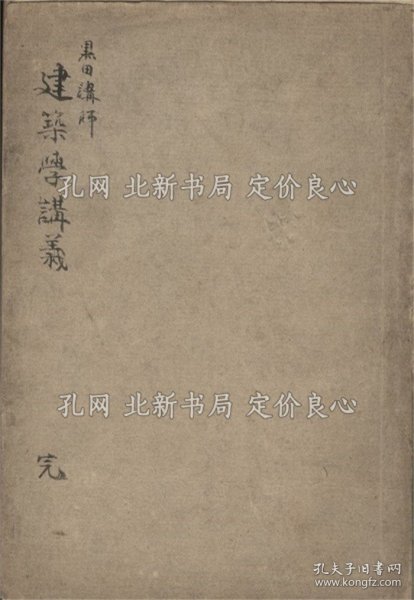 黒田講師
建築學講義
完
孔网 北新书局 定价良心
孔网 北新书局 定价良心
孔夫子旧书网
www.kongfz.com